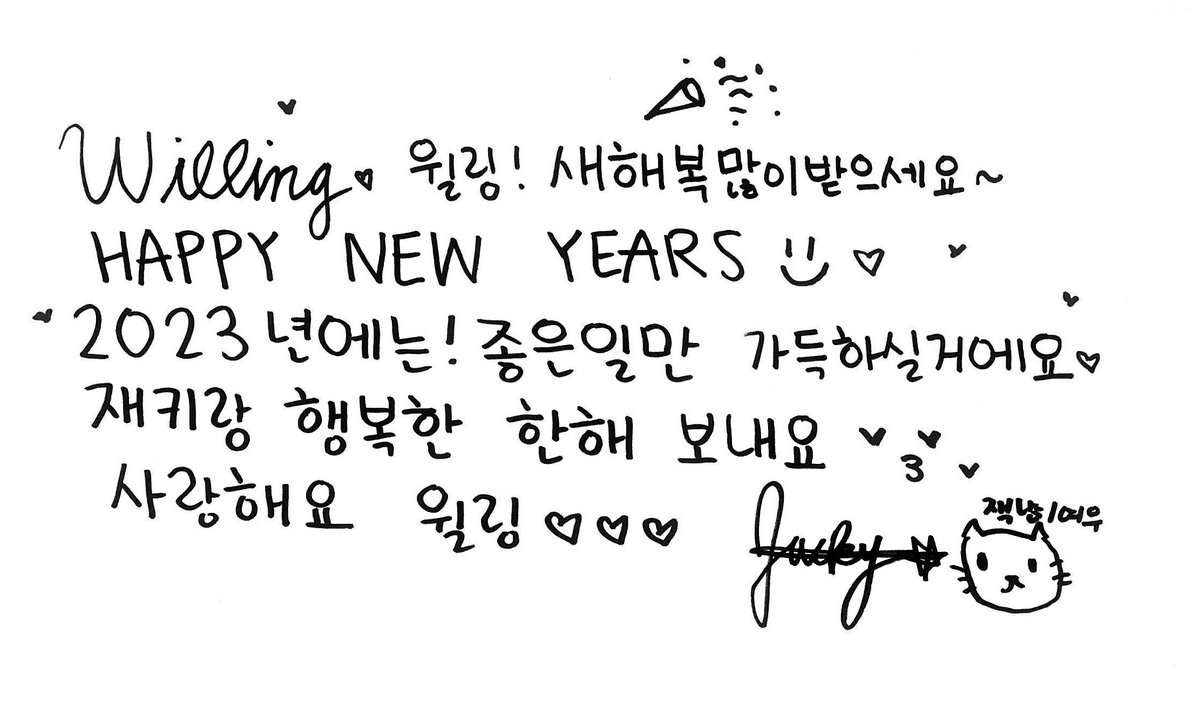 Willing♥ 윌링! 새해복많이받으세요~
HAPPY NEW YEARS ♡
2023년에는! 좋은일만 가득하실거에요♡
재키랑 행복한 한해 보내요 ♥♥
3
사랑해요 윌링♡♡♡
Jacky